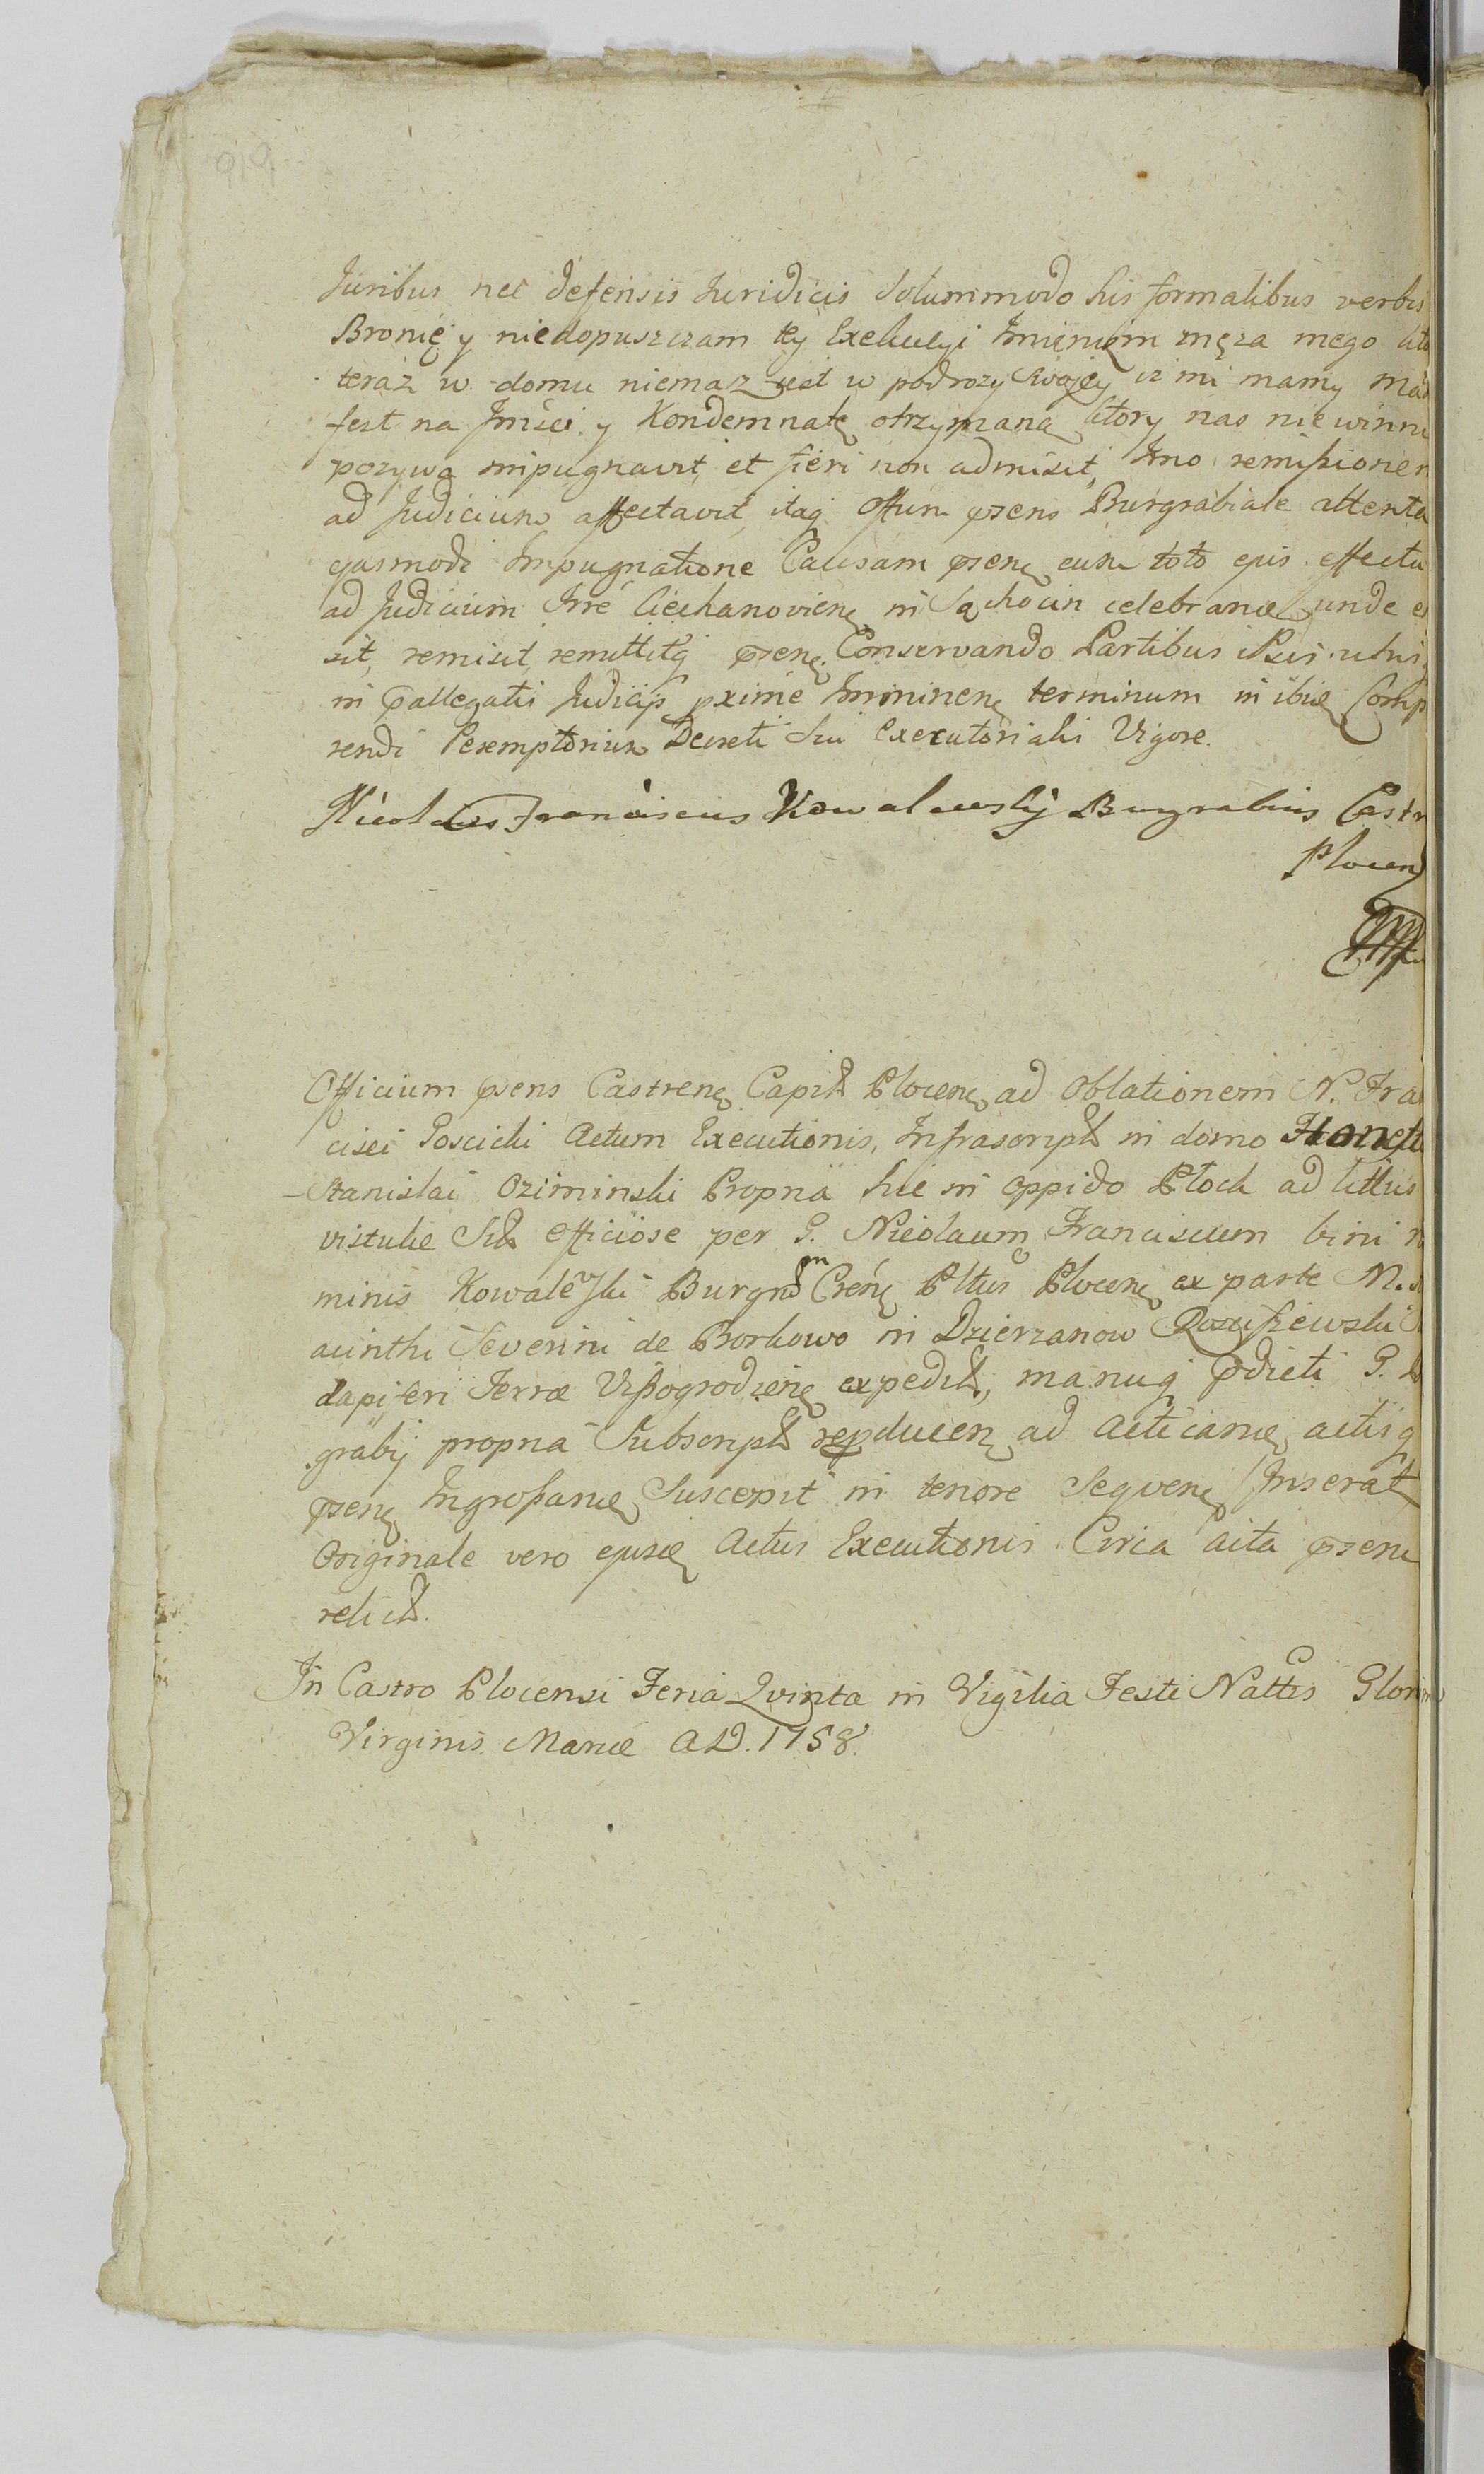 919
Juribus nec defensis Juridicis Solummodo his formalibus verbis
Bronię y niedopuszczam tey Exekucyi Imieniem męza mego kto
teraz w domu niemasz jest w podrozy Swoiey iz mi mamy man
fest na Jmsci y Kondemnatę otrzymaną ktory nas niewinnie
pozywa impugnavit, et fieri non admisit, Imo remissionem
ad Judicium affectavit, itaq Offum prens Burgrabiale attenta
ejusmodi Impugnatione Causam prens cum toto ejus effectu
ad Judicium Trre Ciechanovien in Sąchocin celebran unde e
sit, remisit, remittitq prens Conservando Partibus
in pallegatis Judicijs pxime Imminen terminum in ibid Comp
rendi Peremptorium Decreti Sui Executorialis Vigore.
Nicolaus Franciscus Kowalewskij Burgrabius Castr
Plocen
Officium prens Castren Capitl Plocen ad Oblationem N. Fra
cisci Goscicki Actum Executionis, Infrascript in domo Honest
Stanislai Oziminski Propria hic in Oppido Plock ad littus
vistulae Sit officiose per G. Nicolaum Franciscum bini n
minis Kowalewski Burgrm Cren Pltus Plocen ex parte M.
acinthi Severini de Borkowo in Dzierzanow Rosciszewski
dapiferi Terrae Vissogrodien expedit, manuq pdicti G.
grabij propria Subscript repducen ad acticand, actisq
prens Ingrossand Suscepit in tenore Sequen Inserat
Originale vero ejusd Actus Executionis Circa acta prens
relict.
In Castro Plocensi Feria Qvinta in Vigilia Festi Nattis Glori
Virginis Mariae AD. 1758.